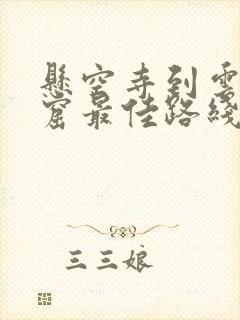 懸空寺到雲
窟最佳路綫
三三娘